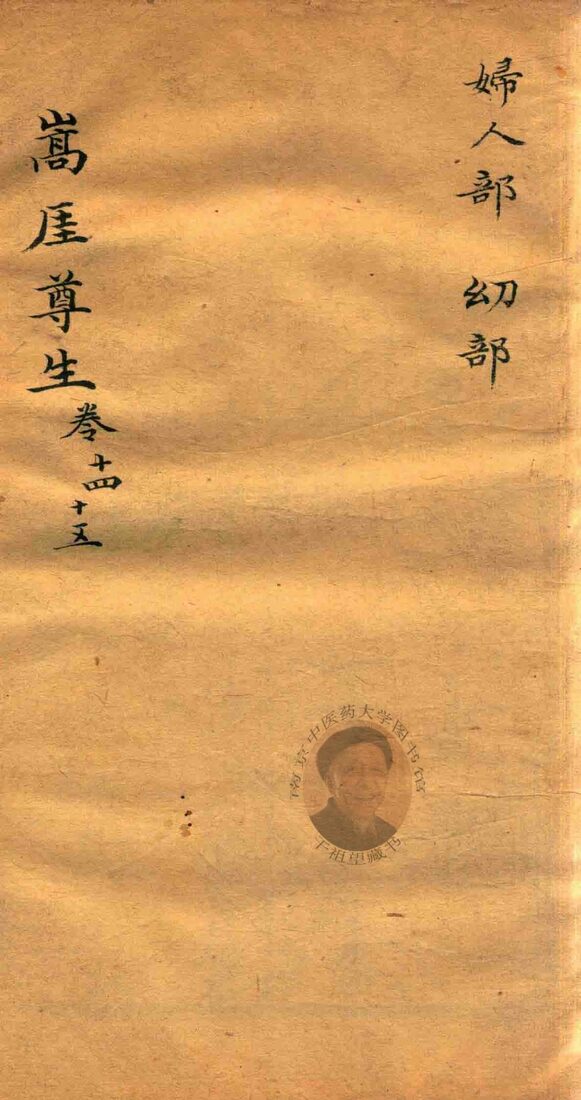 婦人部 幼部
嵩厓尊生 卷十四 十五
南京中医药大学图书馆
干祖望藏书